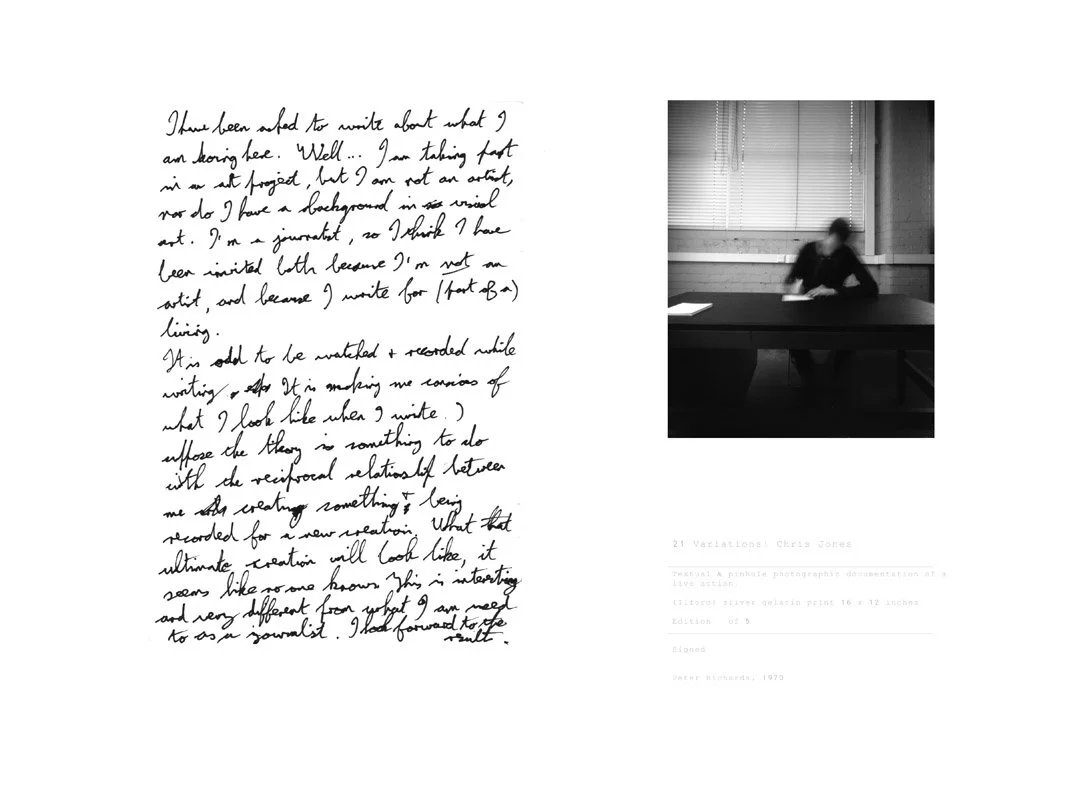 I have been asked to write about what I
am doing here. Well... I am taking part
in an art project, but I am not an artist,
nor do I have a background in visual
art. I'm a journalist, so I think I have
been invited both because I'm not an
artist, and because I write for (part of a)
living.
It is odd to be watched + recorded while
writing. It is making me consious of
what I look like when I write. I
suppose the theory is something to do
with the reciprocal relationship between
me creating something & being
recorded for a new creation. What that
ultimate creation will look like, it
seems like no one knows. This is interesting
and very different from what I am used
to as a journalist. I look forward to the
result.
21 Variations: Chris Jones
Textual & pinhole photographic documentation of a
live action
(Ilford) silver gelatin print 16 x 12 inches
Edition of 5
Signed
Peter Richards, 1970